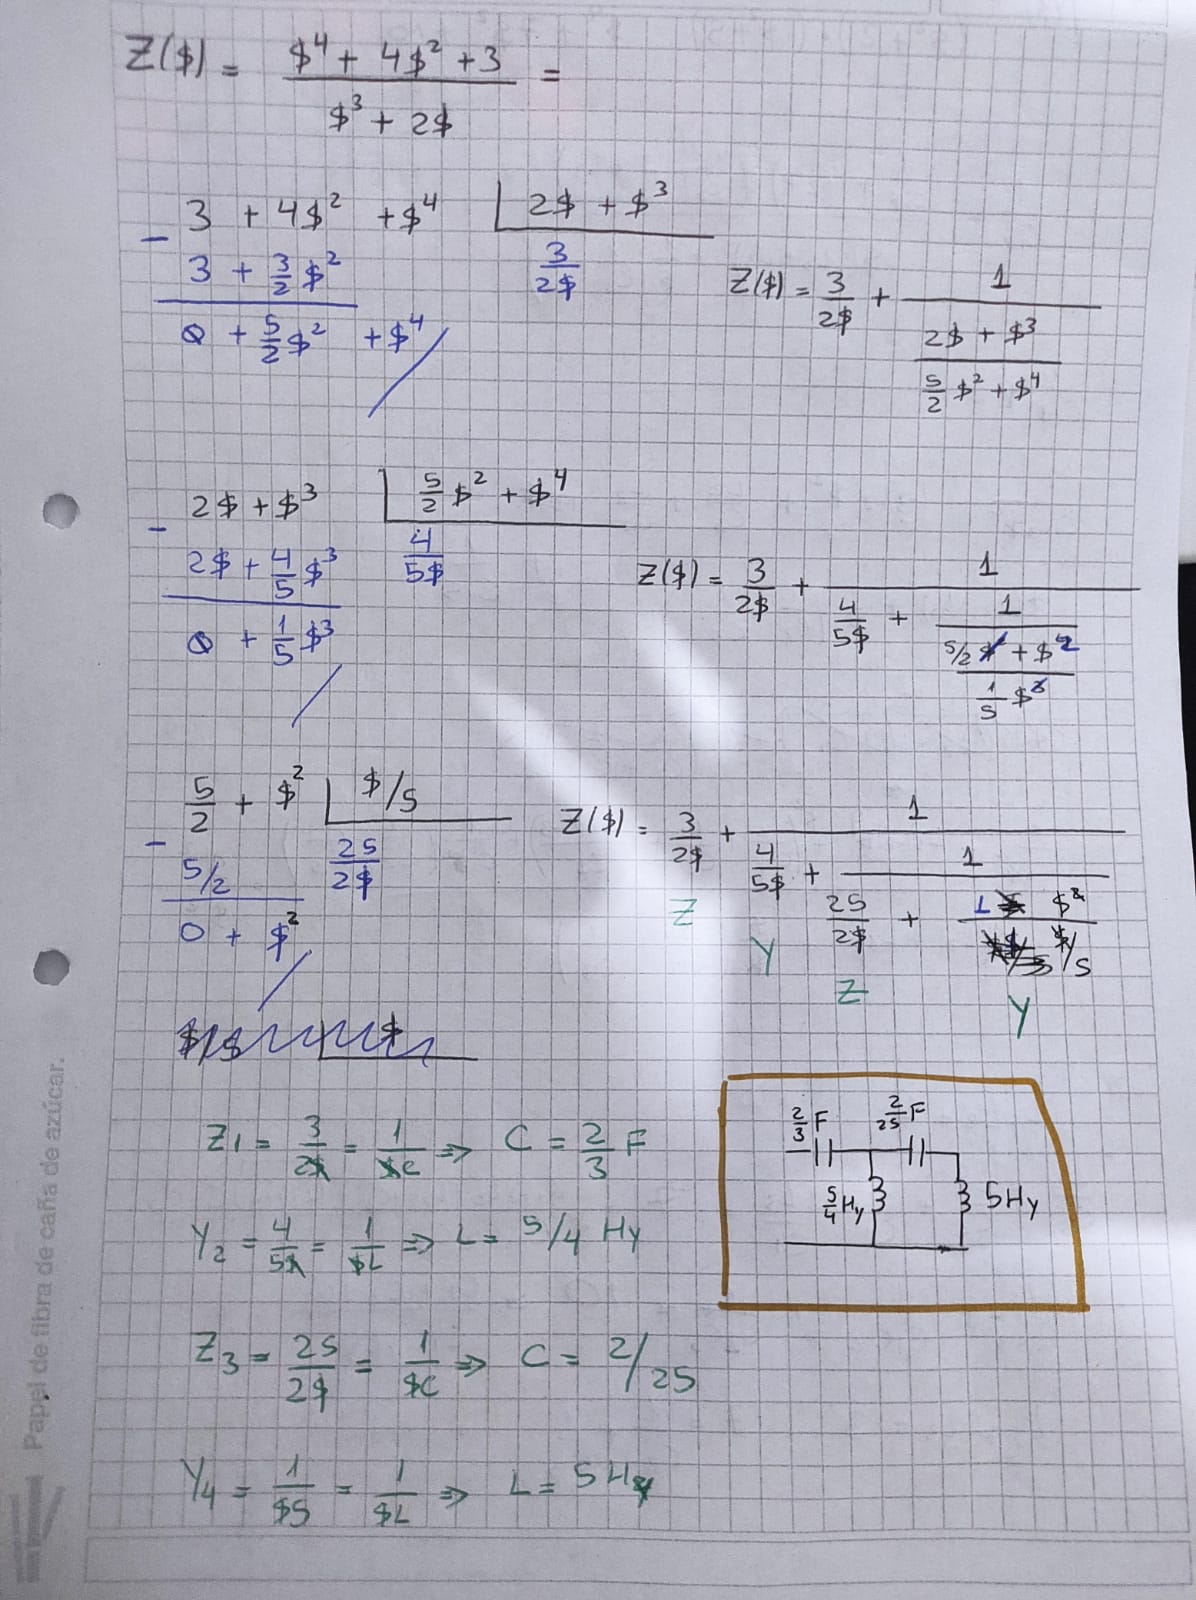 Z($) = $⁴ + 4$² + 3 / $³ + 2$ =
3 + 4$² + $⁴ | 2$ + $³
− 3 + 3/2 $²
3/2$
0 + 5/2 $² + $⁴
Z($) = 3/2$ + 1 / (2$ + $³ / 5/2 $² + $⁴)
2$ + $³ | 5/2 $² + $⁴
− 2$ + 4/5 $³
4/5$
0 + 1/5 $³
Z($) = 3/2$ + 1 / (4/5$ + 1 / (5/2 + $² / 1/5 $))
5/2 + $² | $/5
− 5/2
25/2$
0 + $²
Z($) = 3/2$ + 1 / (4/5$ + 1 / (25/2$ + 1 $² / $/5))
Z
Y
Z
Y
Z1 = 3/2$ = 1/$C ⇒ C = 2/3 F
Y2 = 4/5$ = 1/$L ⇒ L = 5/4 Hy
Z3 = 25/2$ = 1/$C ⇒ C = 2/25
Y4 = 1/$5 = 1/$L ⇒ L = 5 Hy
2/3 F
2/25 F
5/4 Hy
5Hy
Papel de fibra de caña de azúcar.